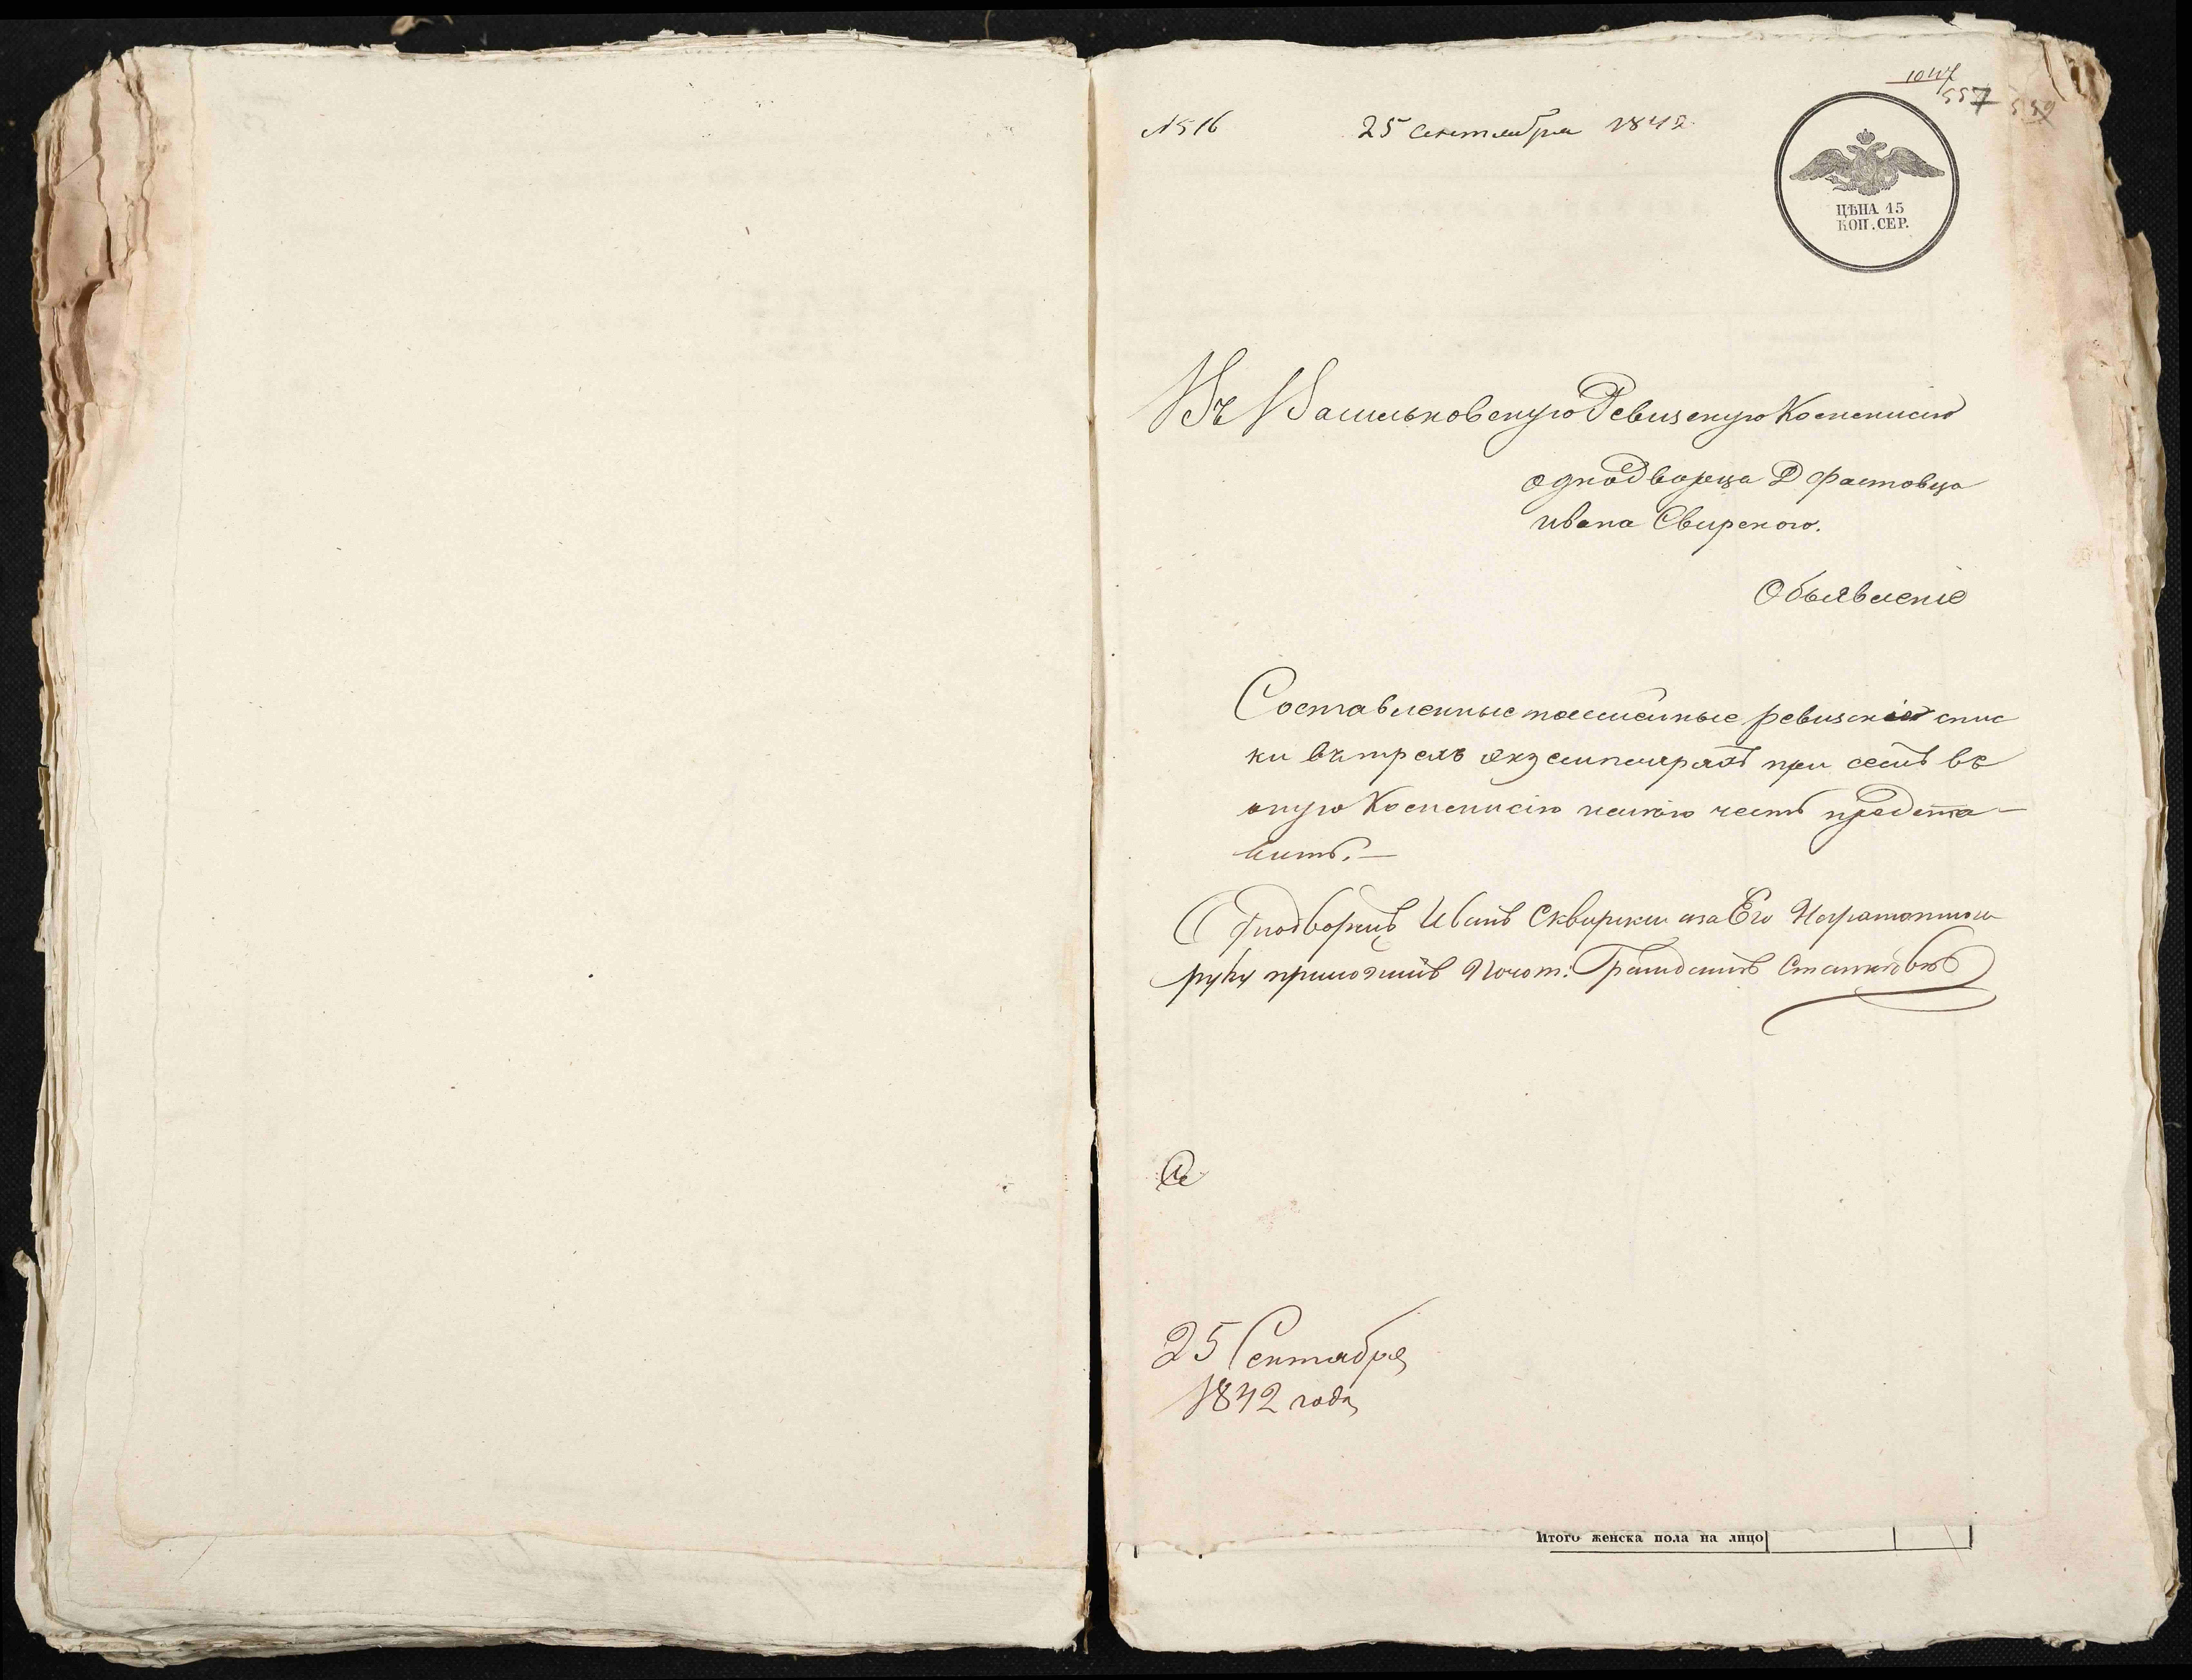 1047
557 559
№ 516 25 сентября 1842
ЦѢНА 15
КОП. СЕР.
Въ Васильковскую Ревизскую Коммисию
однодворца Д Фастовца
ивана Свирского.
Объявленіе
Составленные поименные ревизскіе спис
ки въ трехъ экземплярахъ при семъ въ
оную Коммисію имѣю честь предста-
вить.—
Однодворецъ Иванъ Сквирски а за Его Неграмотного
руку приложилъ Почот: Гражданинъ Станковъ
25 Сентября
1842 года
Итого женска пола на лицо